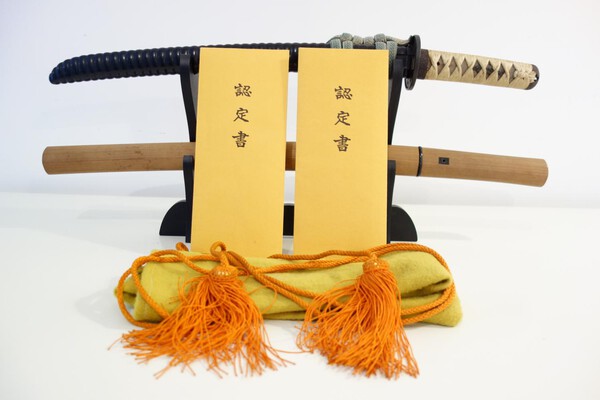 認定書
認定書